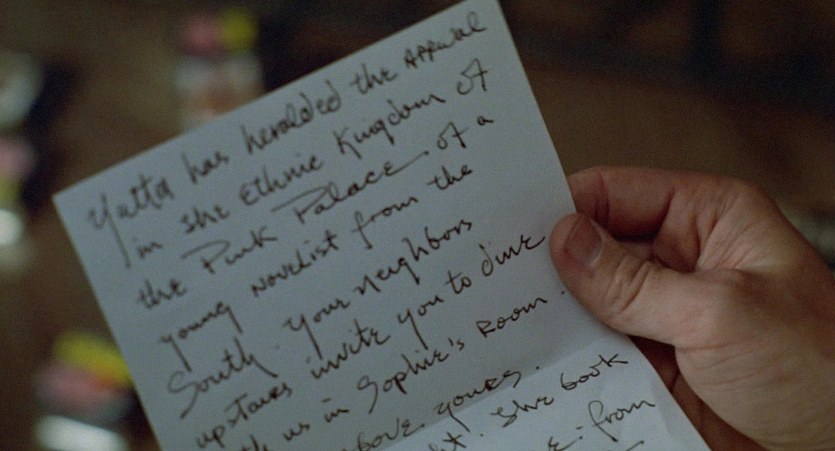 Yetta has heralded the arrival
in the Ethnic Kingdom of
the Pink Palace of a
young novelist from the
South. Your neighbors
upstairs invite you to dine
us in Sophie's Room.
above yours.
She took
from